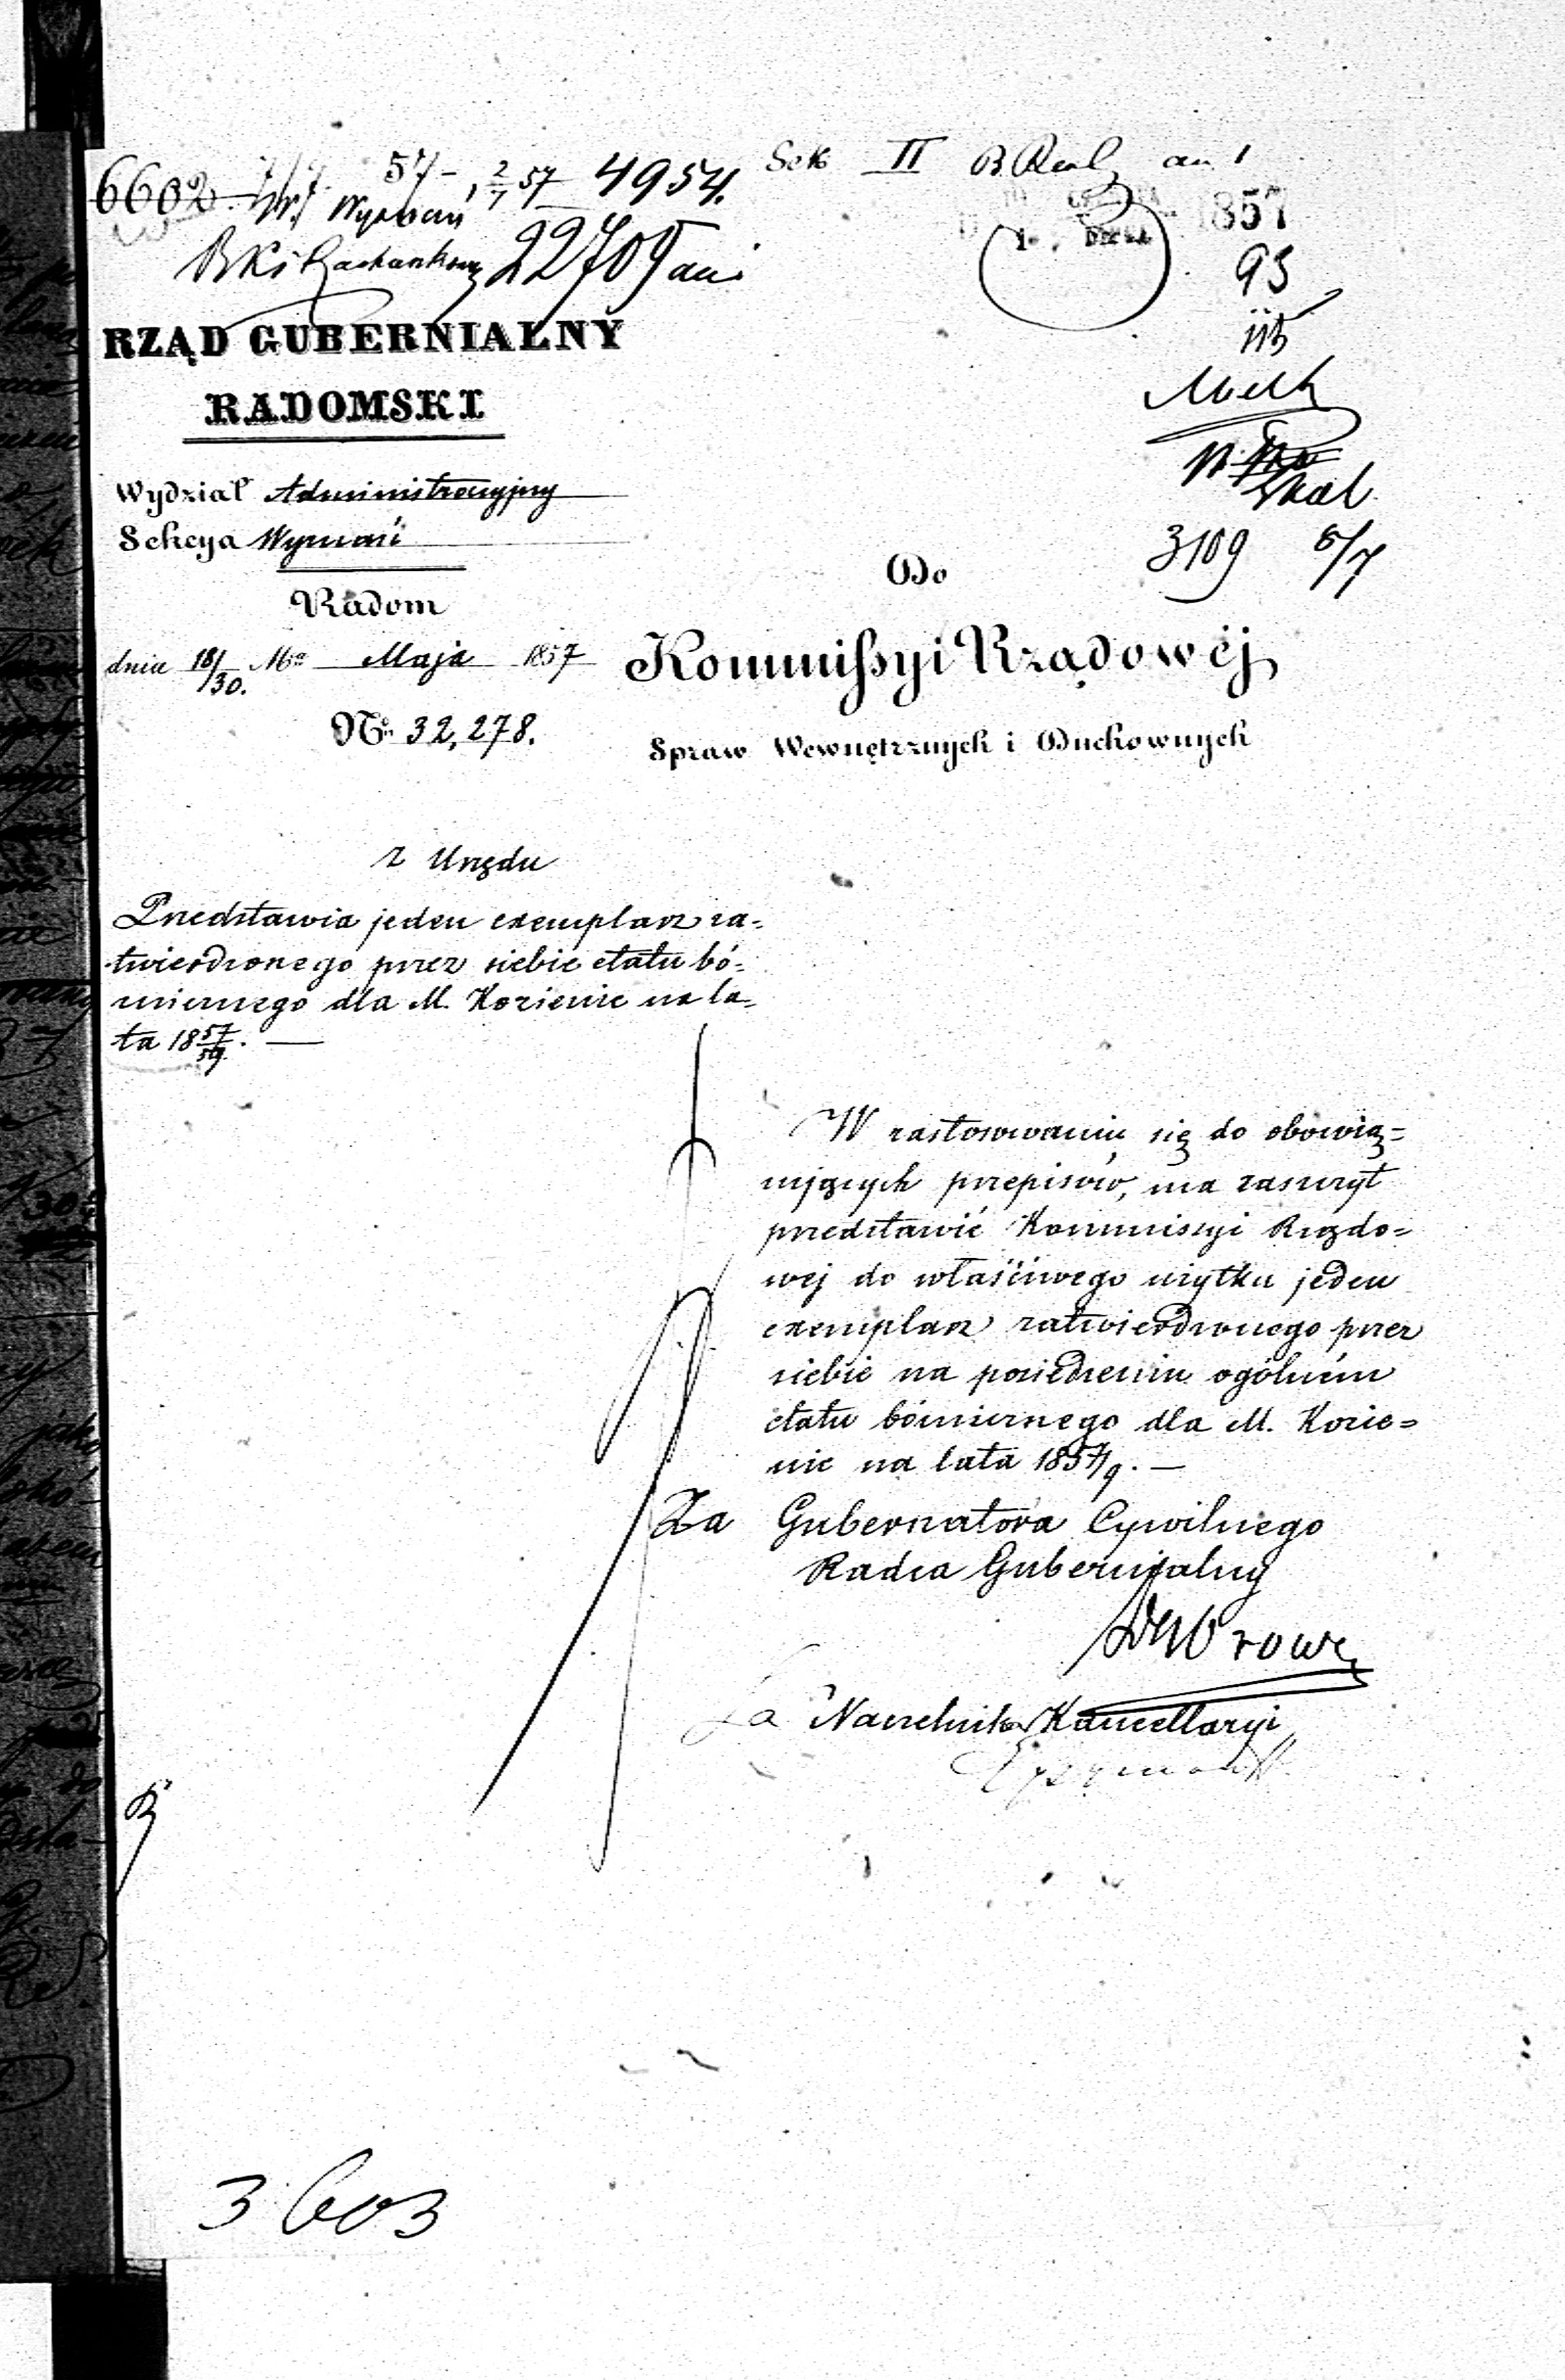 6602 57 2/7 57 4954. Sek II
Wyznań
22709
1857
93
RZĄD GUBERNIALNY
RADOMSKI
Wydział Administracyjny
Sekcya Wyznań
3109 6/7
Radom
dnia 18/30. Mca Maja 1857
No. 32,278.
Do
Kommissyi Rządowéj
Spraw Wewnętrznych i Duchownych
z Urzędu
Przedstawia jeden exemplarz za-
twierdzonego przez siebie etatu bó-
żnicznego dla M. Kozienic na la-
ta 1857/59. —
W zastosowaniu się do obowią=
zujących przepisów, ma zaszczyt
przedstawić Kommissyi Rządo=
wej do właściwego użytku jeden
exemplarz zatwierdzonego przez
siebie na posiedzeniu ogólném
etatu bóżnicznego dla M. Kozie=
nic na lata 1857/9. —
Za Gubernatora Cywilnego
Radca Gubernialny
Za Naczelnika Kancellaryi
3603